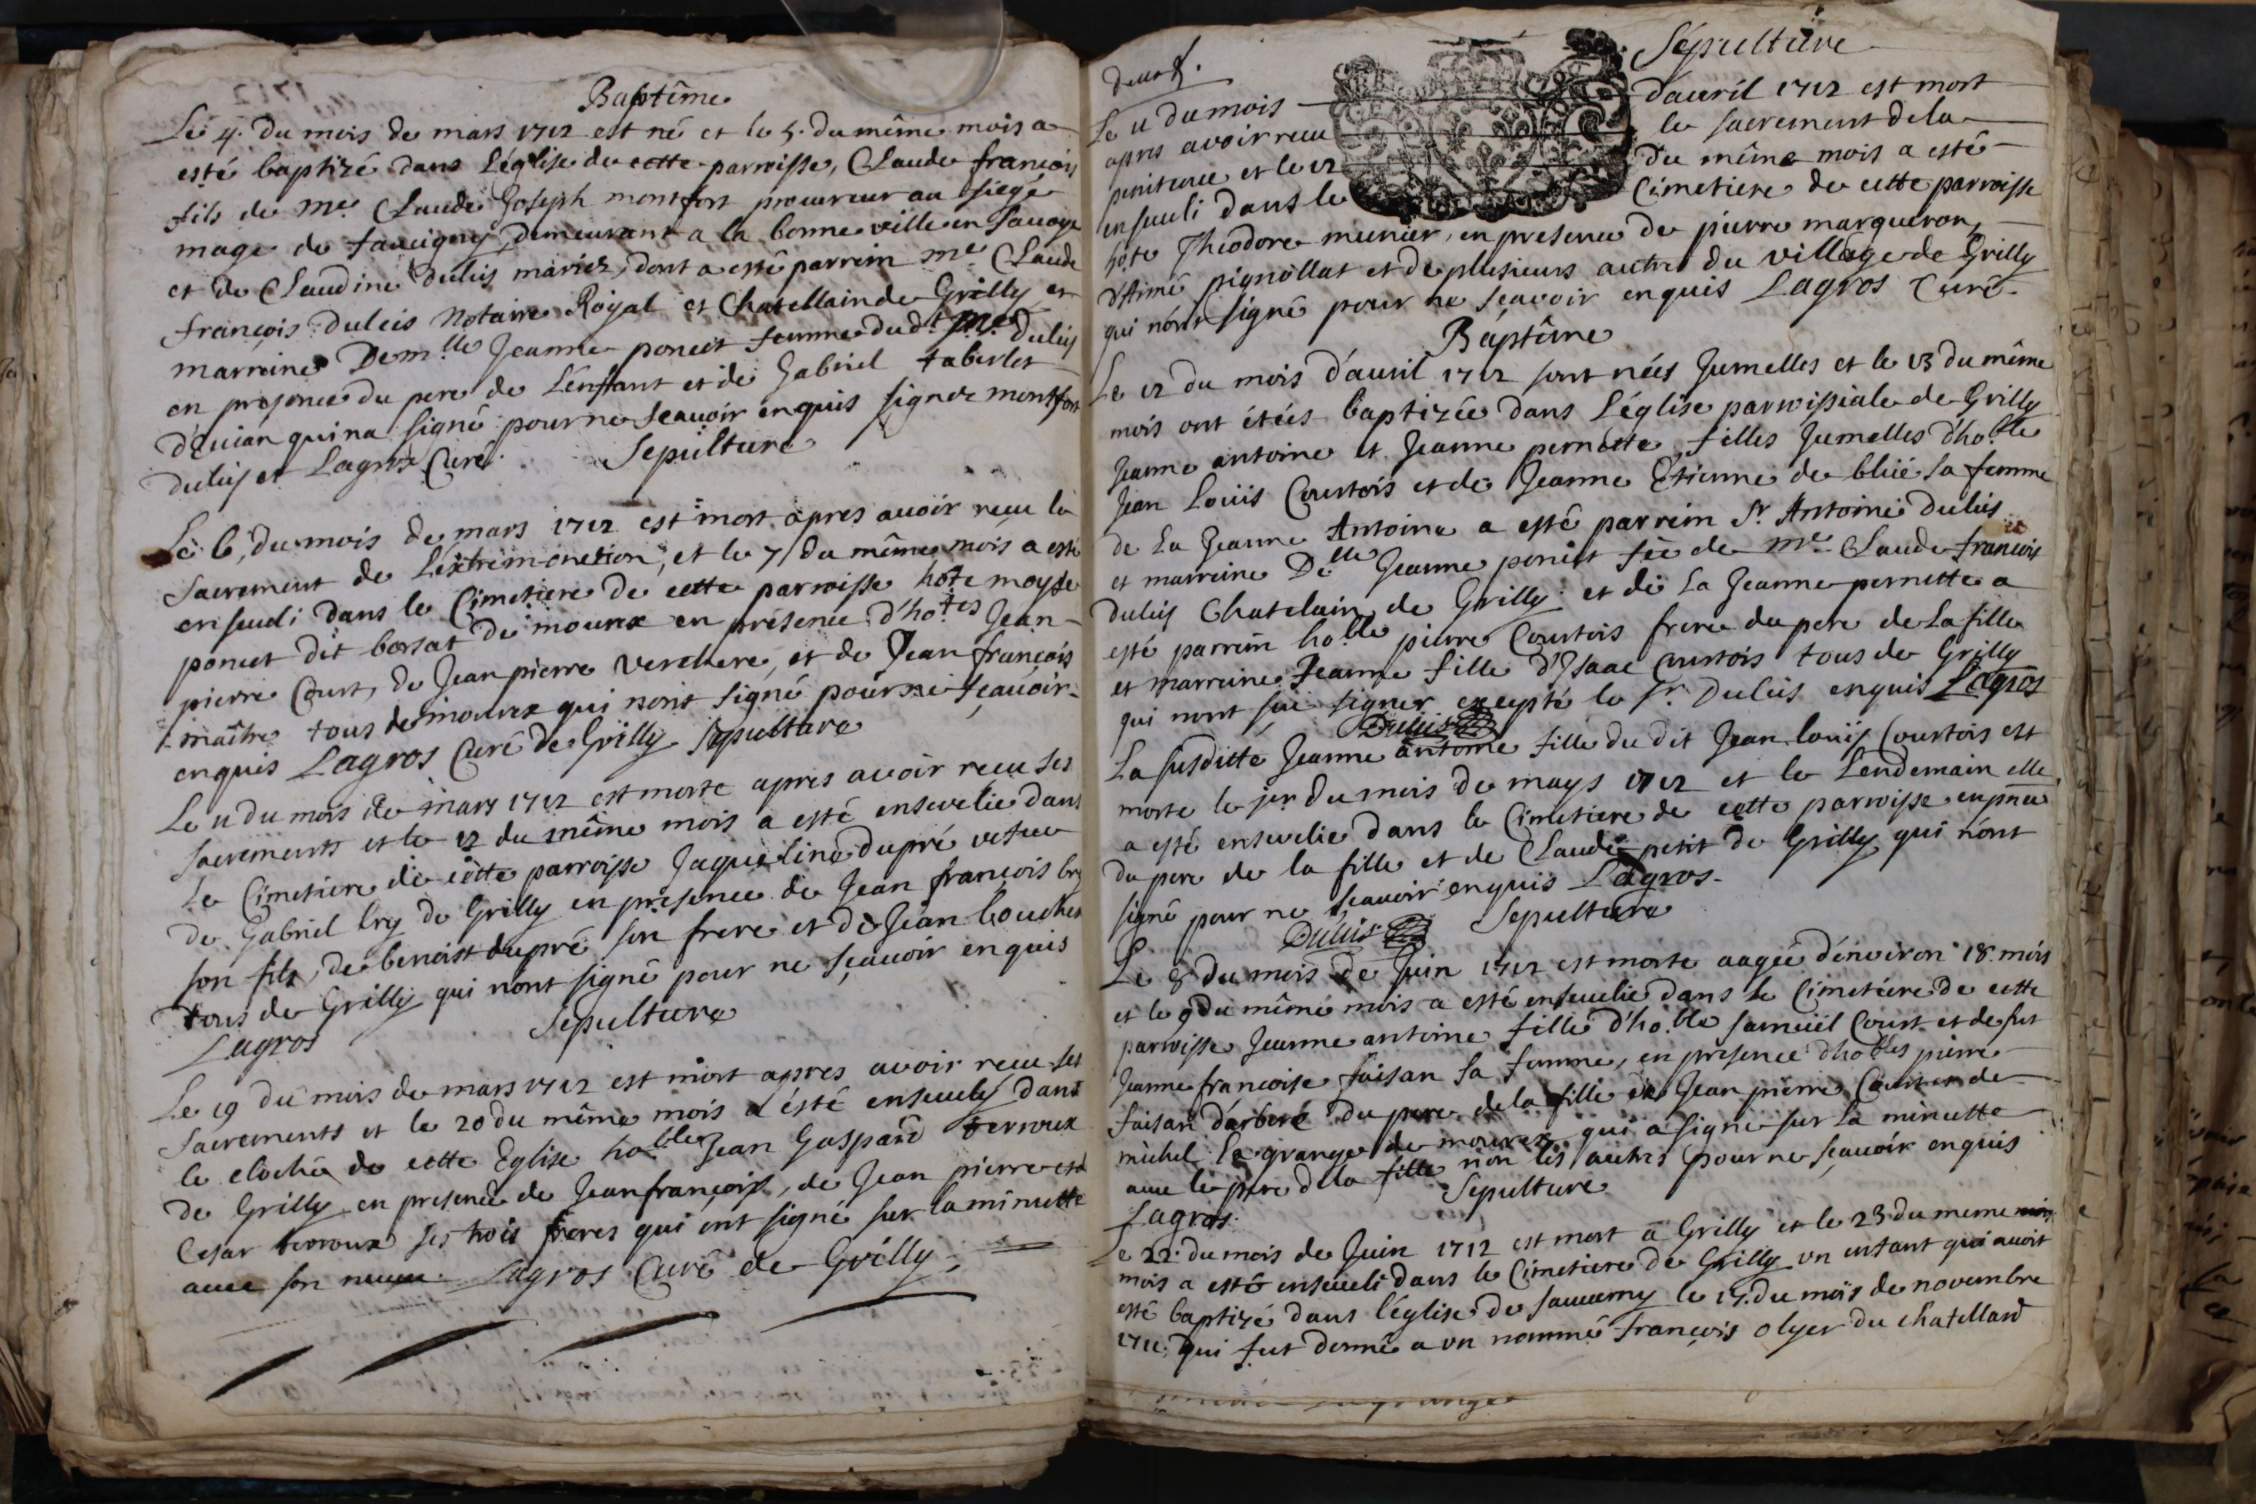 Baptême
Le 4. du mois de mars 1712 est né et le 5. du même mois a
esté baptizé dans L'église de cette parroisse, Claude françois
fils de me. Claude Joseph montfort procureur au siege
mage de faucigny demeurant a la bonne ville en Savoye
et de Claudine Dulcis mariez, dont a esté parrein me Claude
françois Dulcis Notaire Royal et Chatellain de Grilly et
marreine Demlle Jeanne poncet femme dud.t me Dulcis
en presence du pere de L'enffant et de Gabriel taberlet
d'Evian qui na signé pour ne scavoir enquis signez montfort
Dulcis et Lagros Curé.
Sepulture
Le 6, du mois de mars 1712 est mort apres avoir receu le
Sacrement de L'extrem-onction, et le 7 du même mois a esté
enseveli dans le Cimetiere de cette parroisse hote moyse
poncet dit borsat de mourex en présence d'hotes Jean
pierre Court, de Jean pierre Verchere, et de Jean françois
maître tous de mourex qui nont signé pour ne sçavoir
enquis Lagros Curé de Grilly Sepulture
Le 11 du mois de mars 1712 est morte apres avoir receu ses
sacrements et le 12 du même mois a esté ensevelie dans
le Cimetiere de cette parroisse Jaqueline dupré vefue
de Gabriel bry de Grilly en presence de Jean françois bry
son fils, de benoist dupré son frere et de Jean bouchet
tous de Grilly qui nont signé pour ne sçavoir enquis
Lagros
Sepulture
Le 19 du mois de mars 1712 est mort apres avoir receu ses
Sacrements et le 20 du même mois a esté ensevely dans
le cloché de cette Eglise hoble Jean Gaspard verroux
de Grilly en presence de Jean françois, de Jean pierre et d
Cesar verroux ses trois freres qui ont signé sur la minutte
avec son neveu. Lagros Curé de Grilly.
Sépulture
deux s.
Le 11 du mois d'avril 1712 est mort
apres avoir receu le sacrement de la
penitence et le 12 du même mois a esté
enseveli dans le Cimetiere de cette parroisse
hote Theodore meunier, en presence de pierre marqueron,
d'Aimé pignollat et de plusieurs autres du village de Grilly
qui n'ont signé pour ne scavoir enquis Lagros Curé.
Baptême
Le 12 du mois d'avril 1712 sont nées Jumelles et le 13 du même
mois ont étées baptizée dans L'église parroissiale de Grilly
Jeanne antoine et Jeanne pernette, filles Jumelles d'hoble
Jean Loüis Courtois et de Jeanne Etienne de blüé sa femme
de La Jeanne Antoine a esté parrein Sr Antoine Dulcis
et marreine Delle Jeanne poncet fée de me Claude françois
Dulcis Chatelain de Grilly et de La Jeanne pernette a
esté parrein hoble pierre Courtois frere du pere de La fille
et marreine Jeanne fille d'Isaac Courtois tous de Grilly
qui nont sçu signer excepté le Sr Dulcis enquis Lagros
Dulcis
La susditte Jeanne antoine fille du dit Jean loüis Courtois est
morte le jer du mois de mays 1712 et le Lendemain elle
a esté ensevelie dans le Cimetiere de cette parroisse en pnce
du pere de la fille et de Claude petit de Grilly qui n'ont
signé pour ne scavoir enquis Lagros.
Dulcis Sepulture
Le 8 du mois de Juin 1712 est morte aagée d'environ 18. mois
et le 9 du même mois a esté ensevelie dans le Cimetiere de cette
parroisse Jeanne antoine fille d'hoble samuël Court et de fut
Jeanne francoise faisan sa femme, en presence d'hobles pierre
faisan d'arbere du pere de la fille de Jean pierre Court et de
michel la grange de mourex qui a signé sur la minutte
avec le pere de la fille non les autres pour ne sçavoir enquis
Lagros.
Sepulture
Le 22. du mois de Juin 1712 est mort a Grilly et le 23 du meme
mois a esté enseveli dans le Cimetiere de Grilly un enfant qui avoit
esté baptizé dans l'église de sauverny le 15. du mois de novembre
1711. qui fut donné a un nommé françois olyer du chatellard